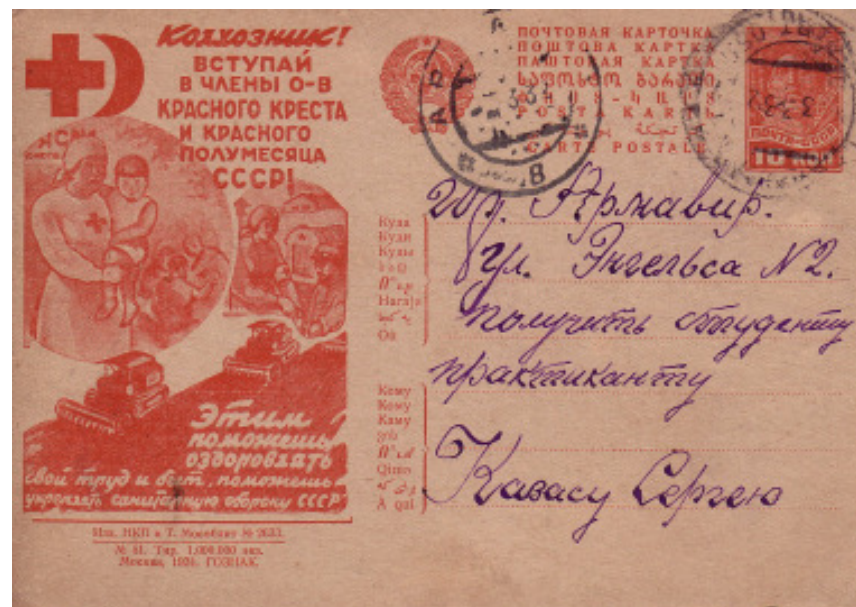 Колхозник!
ВСТУПАЙ
В ЧЛЕНЫ О-В
КРАСНОГО КРЕСТА
И КРАСНОГО
ПОЛУМЕСЯЦА
СССР!
Этим
поможешь
оздоровлять
свой труд и быт, поможешь
укреплять санитарную оборону СССР
№ 81. Тир. 1,000,000 экз.
Москва, ГОЗНАК.
ПОЧТОВАЯ КАРТОЧКА
ПОШТОВА КАРТКА
ПАШТОВАЯ КАРТКА
CARTE POSTALE
ПОЧТА СССР
Куда
Куди
Куды
Où
Кому
Кому
Каму
Qimə
A qui
гор. Армавир.
Ул. Энгельса №2.
получить студенту
практиканту
Кавасу Сергею